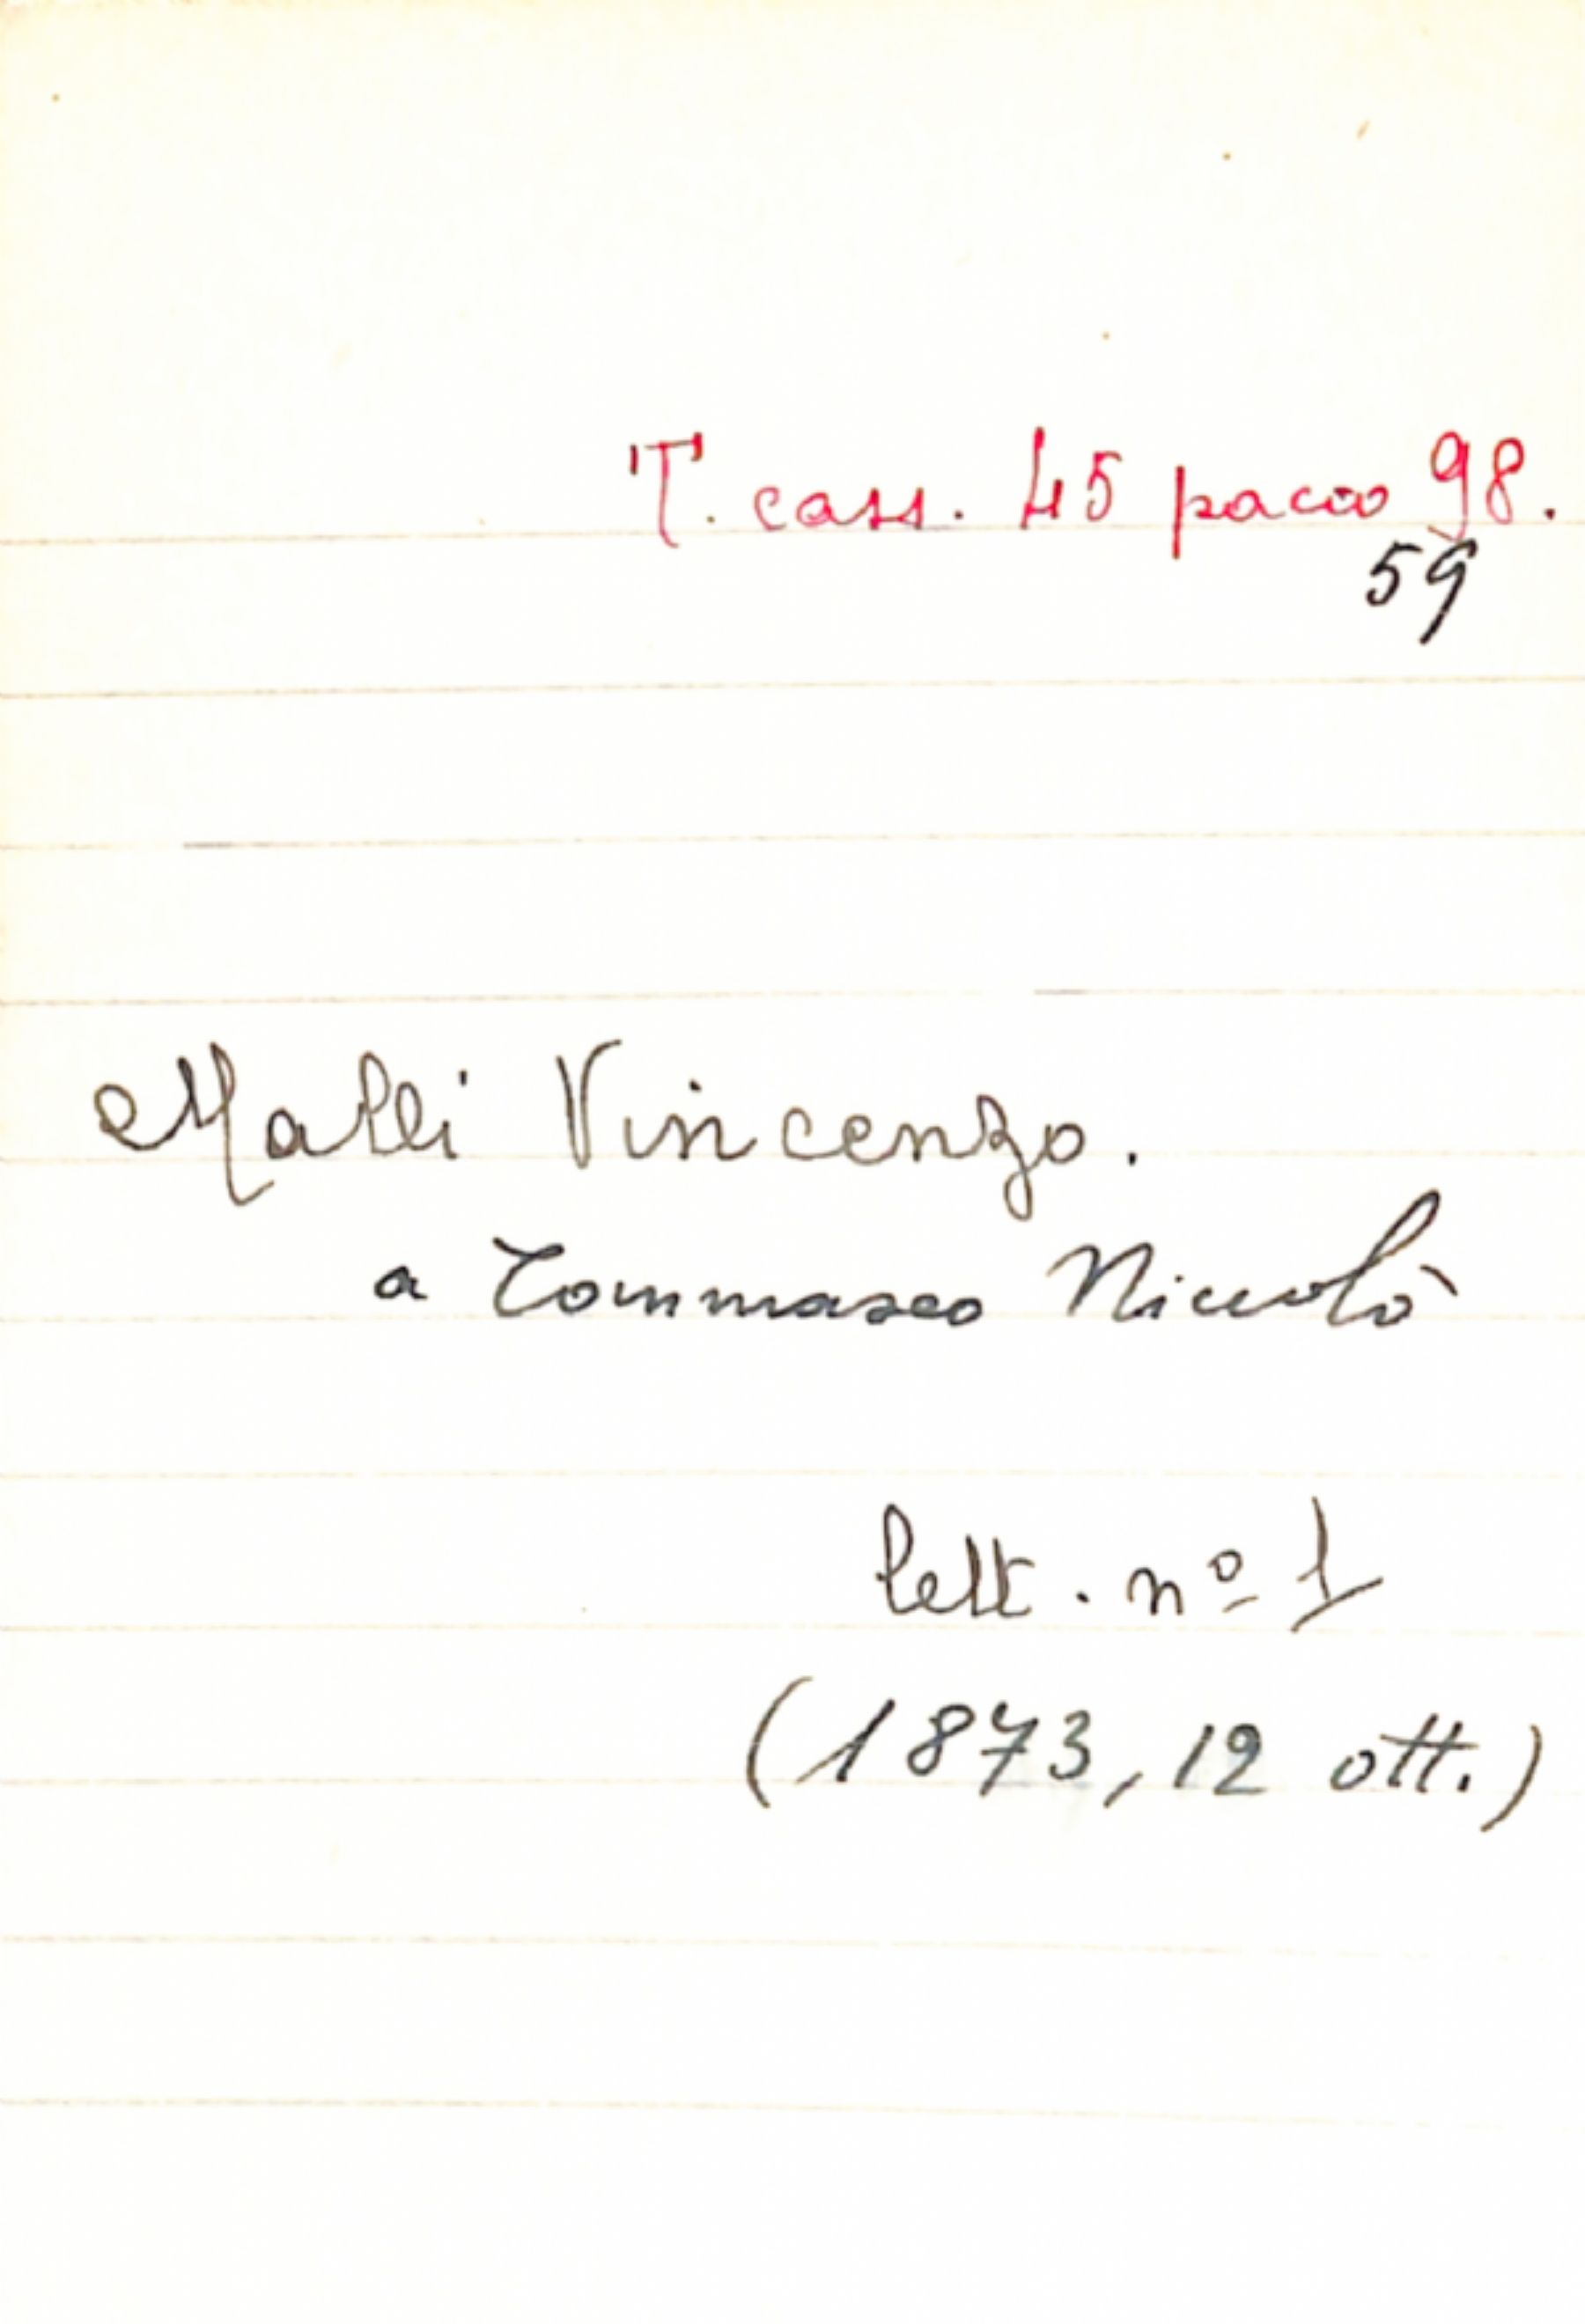 T. cass. 45 pacco 98.
59
Malli Vincenzo.
a Tommaseo Niccolò
lett. nº 1
(1873, 12 ott.)